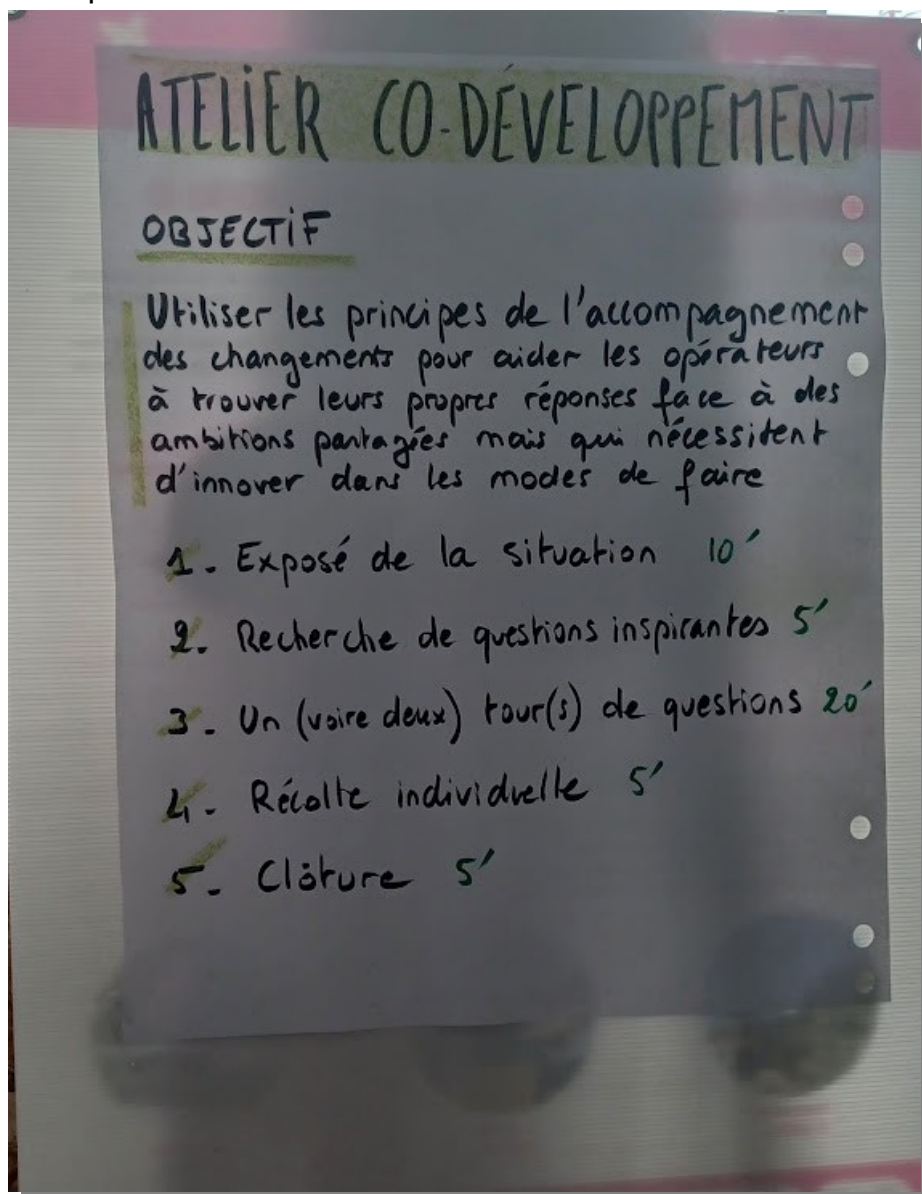 ATELIER CO-DÉVELOPPEMENT
OBJECTIF
Utiliser les principes de l'accompagnement
des changements pour aider les opérateurs
à trouver leurs propres réponses face à des
ambitions partagées mais qui nécessitent
d'innover dans les modes de faire
1. Exposé de la situation 10'
2. Recherche de questions inspirantes 5'
3. Un (voire deux) tour(s) de questions 20'
4. Récolte individuelle 5'
5. Clôture 5'